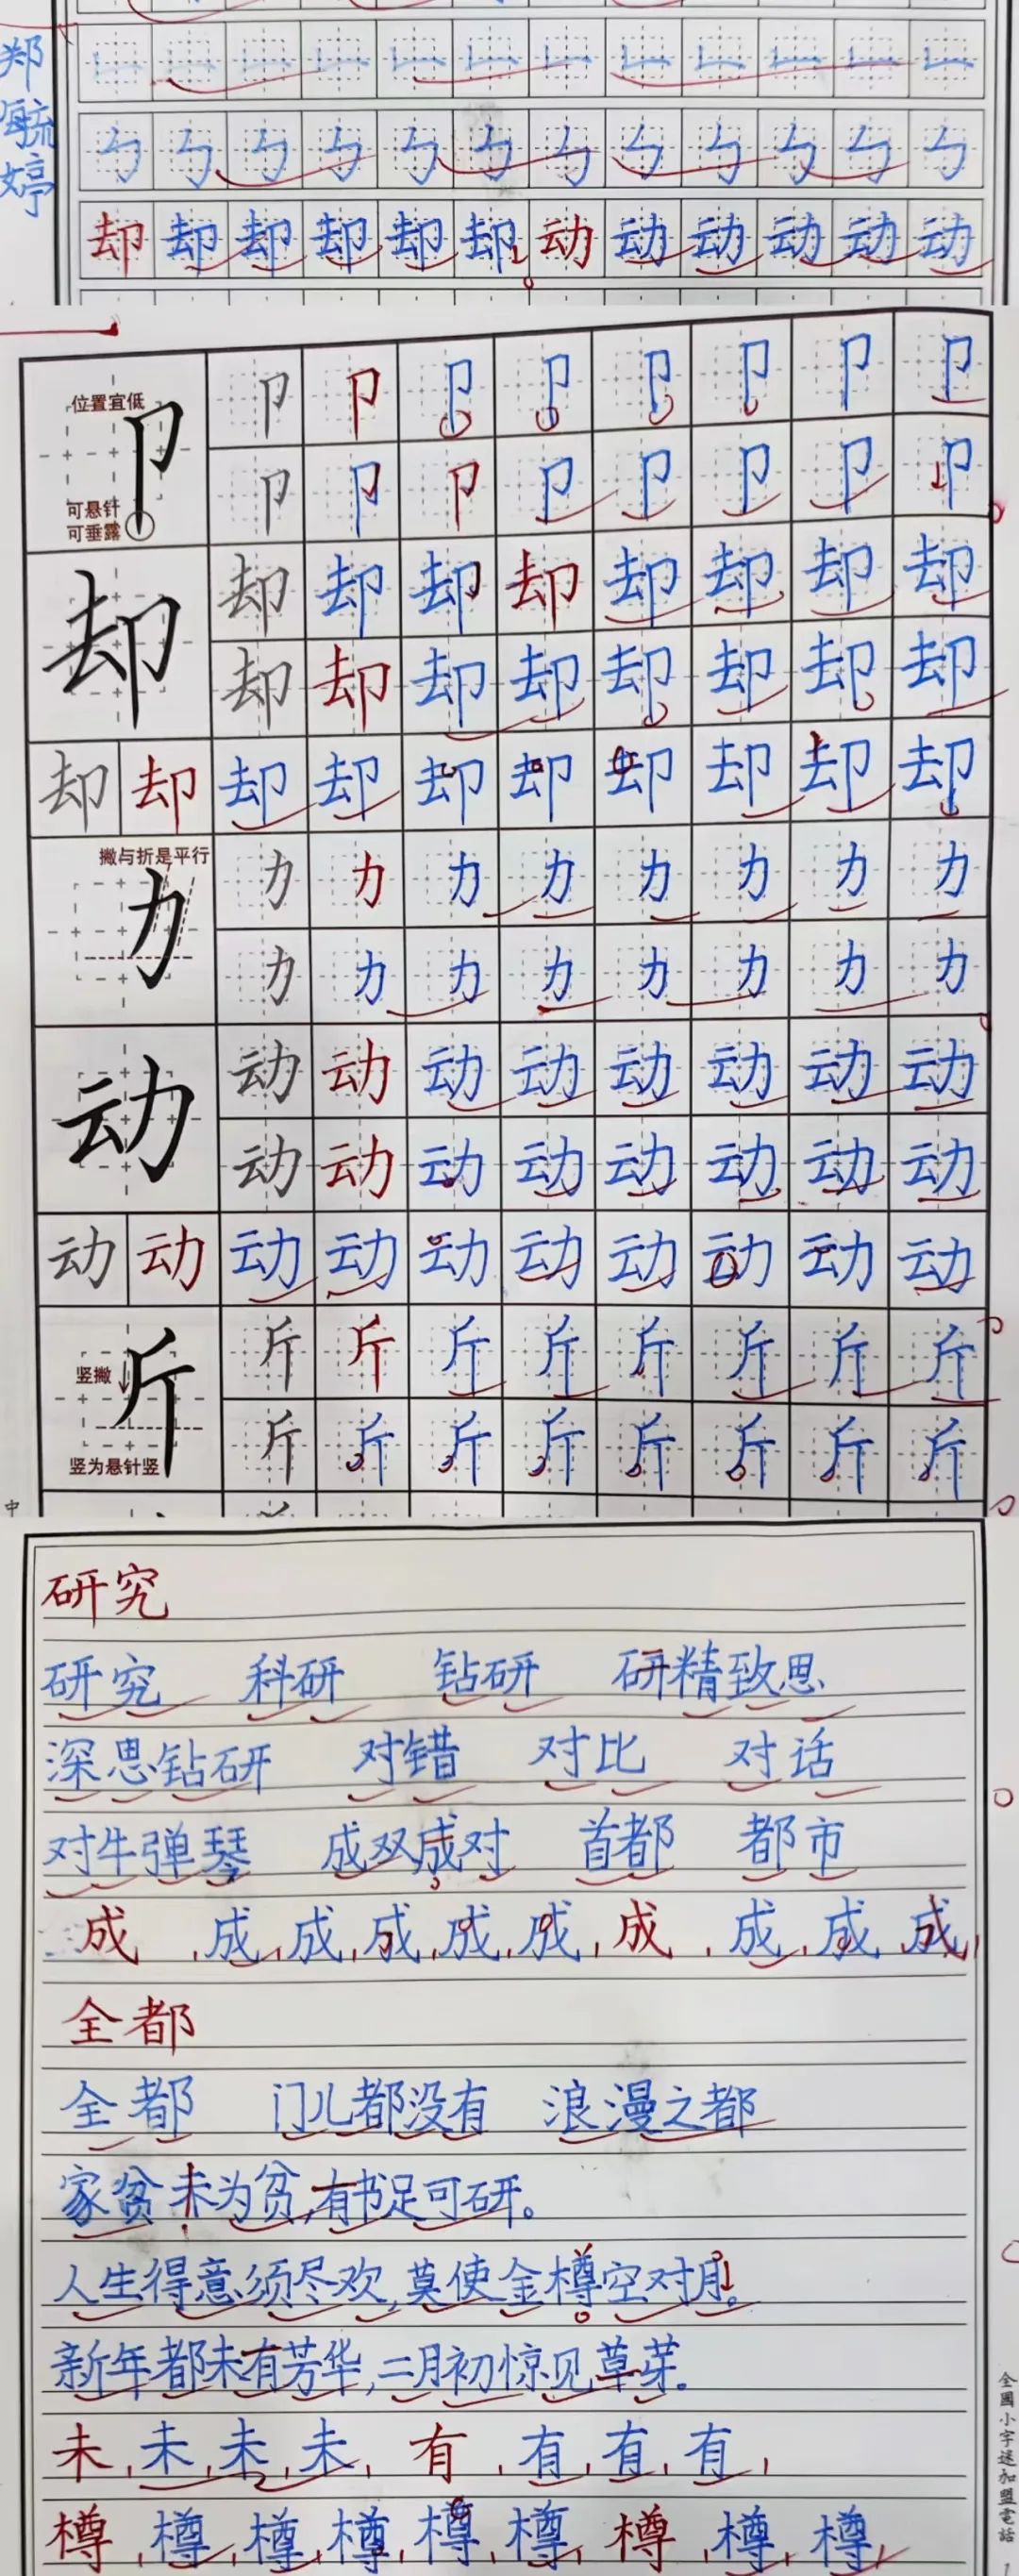 郑毓婷
却 却 却 却 却 却 动 动 动 动 动 动
位置宜低
卩 卩 卩 卩 卩 卩 卩 卩 卩
可悬针
可垂露
卩 卩 卩 卩 卩 卩 卩 卩
却 却 却 却 却 却 却 却 却
却 却 却 却 却 却 却 却
却 却 却 却 却 却 却 却 却 却
撇与折是平行
力 力 力 力 力 力 力 力 力
力 力 力 力 力 力 力 力
动 动 动 动 动 动 动 动 动
动 动 动 动 动 动 动 动
动 动 动 动 动 动 动 动 动 动
竖撇
斤 斤 斤 斤 斤 斤 斤 斤 斤
竖为悬针竖
斤 斤 斤 斤 斤 斤 斤 斤
中
研究
研究 科研 钻研 研精致思
深思钻研 对错 对比 对话
对牛弹琴 成双成对 首都 都市
成 成 成 成 成 成 成 成 成 成
全都
全都 门儿都没有 浪漫之都
家贫未为贫,有书足可研。
人生得意须尽欢,莫使金樽空对月。
新年都未有芳华,二月初惊见草芽。
未 未 未 未 有 有 有 有
樽 樽 樽 樽 樽 樽 樽 樽 樽
全國小字迷加盟電話